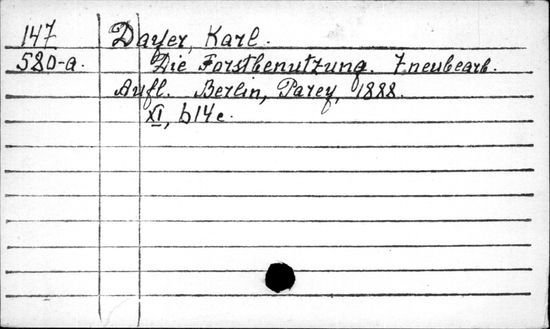 147 Dayer, Karl.
580-a. Die Forstbenutzung. 7 neubearb.
Aufl. Berlin, Parey, 1888.
XI, 614 c.